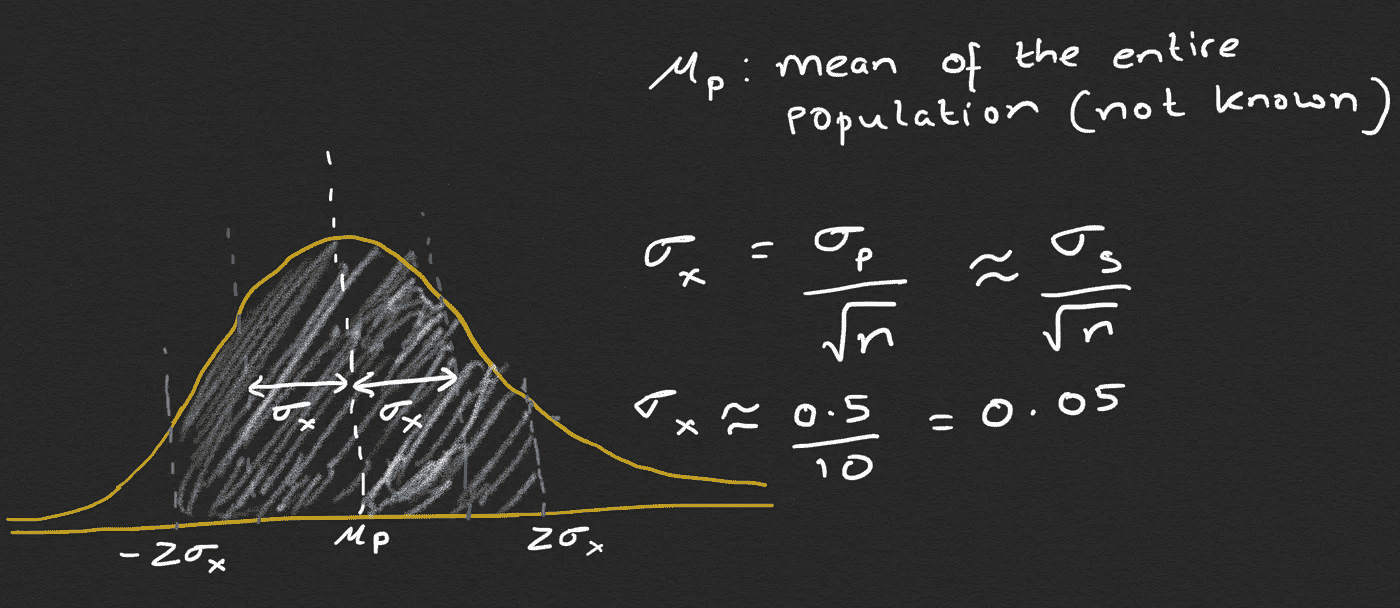 μp : mean of the entire
population (not known)
σx = σp / √n ≈ σs / √n
σx ≈ 0.5 / 10 = 0.05
σx σx
-2σx μp 2σx